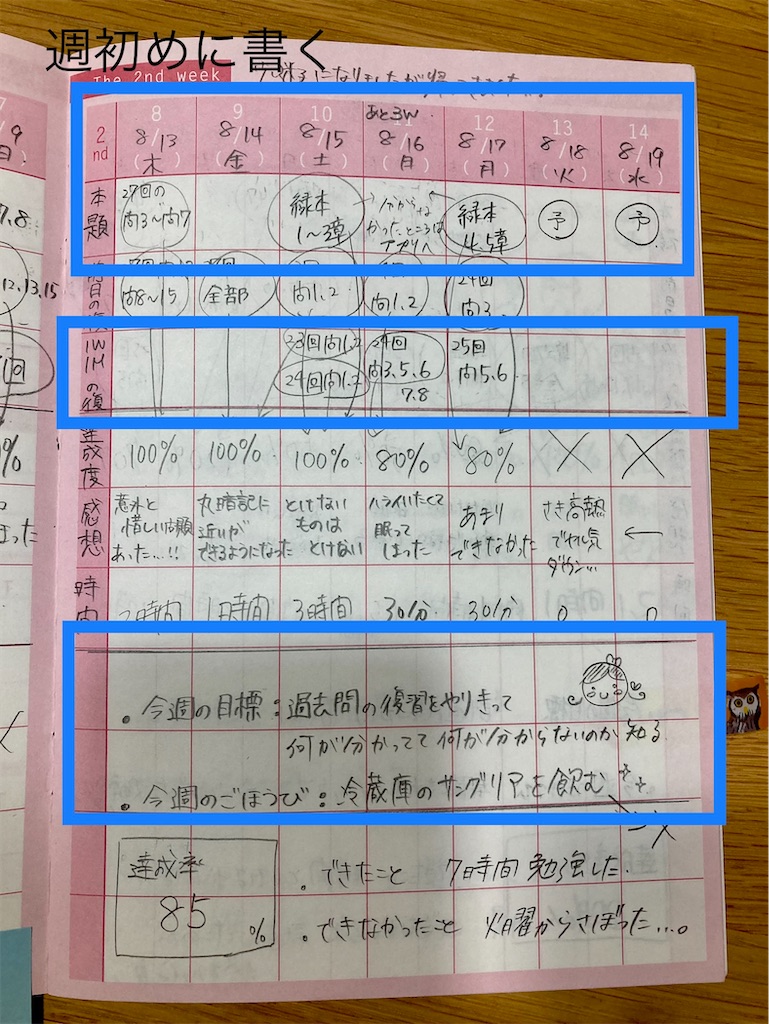 週初めに書く
The 2nd week
2nd
8 9 10 あと3W 12 13 14
8/13 8/14 8/15 8/16 8/17 8/18 8/19
(木) (金) (土) (日) (月) (火) (水)
本題
27回の
問3~問7
緑本
1~3章
緑本
4.5章
予
予
問8~15
全部
問1.2
問1.2
24回
問3
1W1Mの復
23回問1.2
24回問1.2
24回
問3.5.6
7.8
25回
問5.6
達成度 100% 100% 100% 80% 80% × ×
感想
意外と
惜しい問題
あった…!!
丸暗記に
近いが
できるようになった
とけない
ものは
とけない
ハライいたくて
眠って
しまった
あまり
できなかった
高熱
ダウン…
←
時間 2時間 1時間 3時間 30分 30分 0 0
・今週の目標:過去問の復習をやりきって
何が分かってて何が分からないのか知る
・今週のごほうび:冷蔵庫のサングリアを飲む
達成率
85
%
・できたこと 7時間勉強した.
・できなかったこと 火曜からさぼった…。